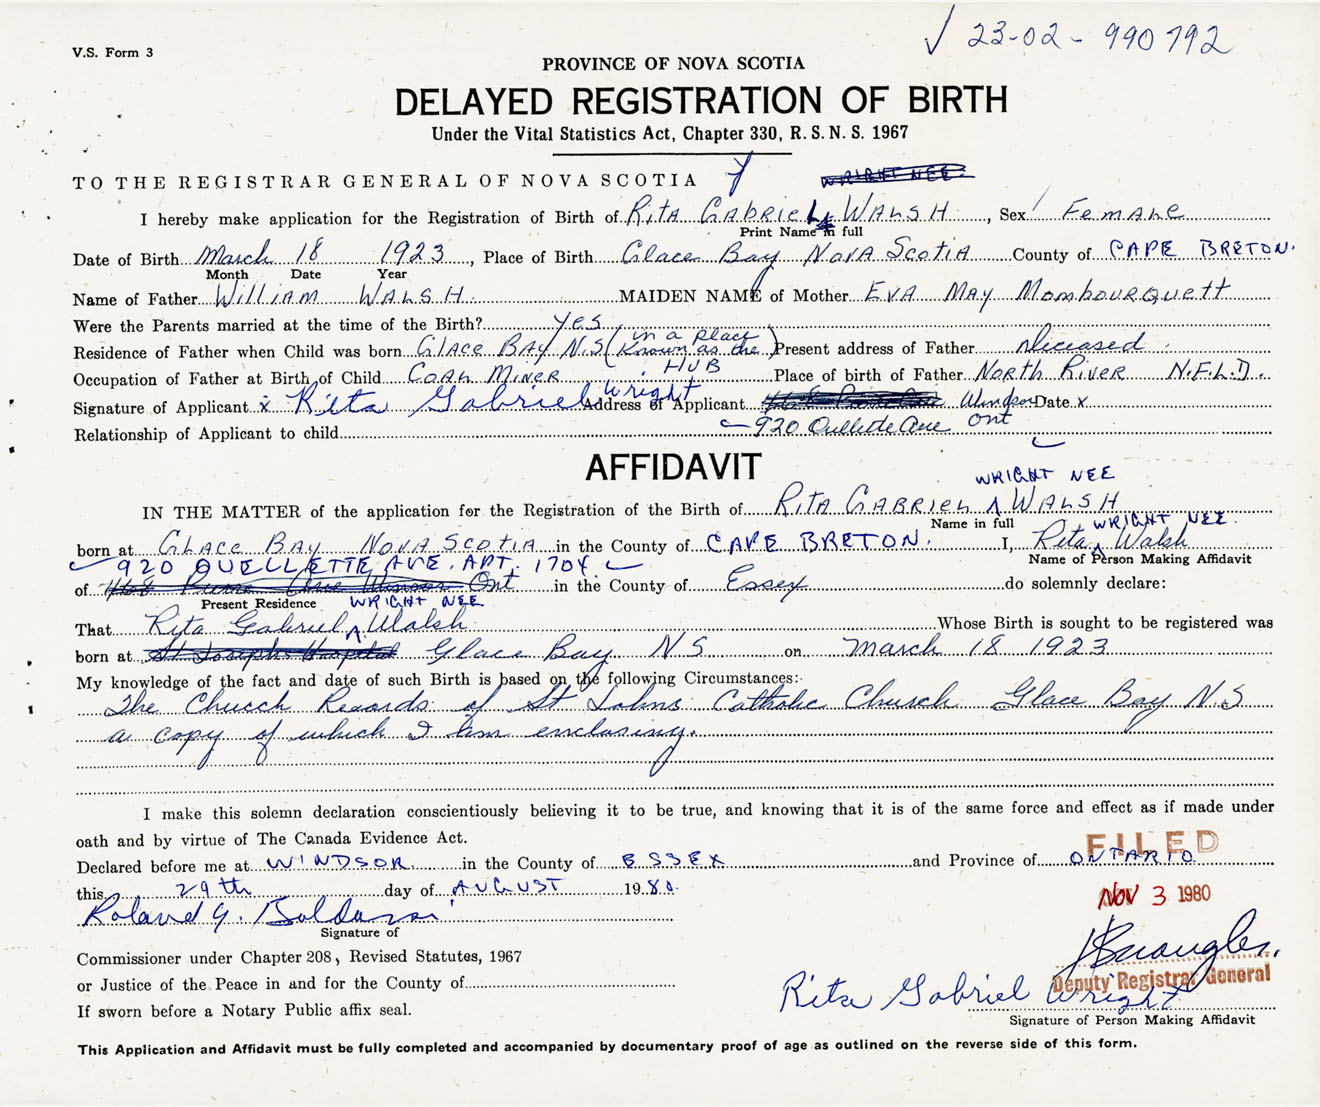 ✓ 23-02-990792
V.S. Form 3
PROVINCE OF NOVA SCOTIA
DELAYED REGISTRATION OF BIRTH
Under the Vital Statistics Act, Chapter 330, R. S. N. S. 1967
TO THE REGISTRAR GENERAL OF NOVA SCOTIA WRIGHT NEE
I hereby make application for the Registration of Birth of Rita Gabriel Walsh, Sex Female
Print Name in full
Date of Birth March 18 1923, Place of Birth Glace Bay Nova Scotia County of CAPE BRETON.
Month Date Year
Name of Father William Walsh MAIDEN NAME of Mother Eva May Mombourquett
Were the Parents married at the time of the Birth? yes
Residence of Father when Child was born Glace Bay N.S (in a place known as the HUB) Present address of Father Deceased
Occupation of Father at Birth of Child Coal Miner Place of birth of Father North River N.F.L.D.
Signature of Applicant x Rita Gabriel Wright Address of Applicant Windsor Date x
920 Ouellette Ave Ont
Relationship of Applicant to child
AFFIDAVIT
WRIGHT NEE
IN THE MATTER of the application for the Registration of the Birth of Rita Gabriel Walsh
Name in full WRIGHT NEE
born at Glace Bay Nova Scotia in the County of CAPE BRETON. I, Rita Walsh
Name of Person Making Affidavit
920 OUELLETTE AVE. APT. 1704.
of Ont in the County of Essex do solemnly declare:
Present Residence WRIGHT NEE
That Rita Gabriel Walsh Whose Birth is sought to be registered was
born at St Josephs Hospital Glace Bay NS on March 18 1923
My knowledge of the fact and date of such Birth is based on the following Circumstances:
The Church Records of St Johns Catholic Church Glace Bay N.S
a copy of which I am enclosing.
I make this solemn declaration conscientiously believing it to be true, and knowing that it is of the same force and effect as if made under
oath and by virtue of The Canada Evidence Act.
FILED
Declared before me at WINDSOR. in the County of ESSEX and Province of ONTARIO
this 29th day of AUGUST 1980.
NOV 3 1980
Roland G.
Signature of
Commissioner under Chapter 208, Revised Statutes, 1967
or Justice of the Peace in and for the County of
Deputy Registrar General
Rita Gabriel Wright
If sworn before a Notary Public affix seal.
Signature of Person Making Affidavit
This Application and Affidavit must be fully completed and accompanied by documentary proof of age as outlined on the reverse side of this form.